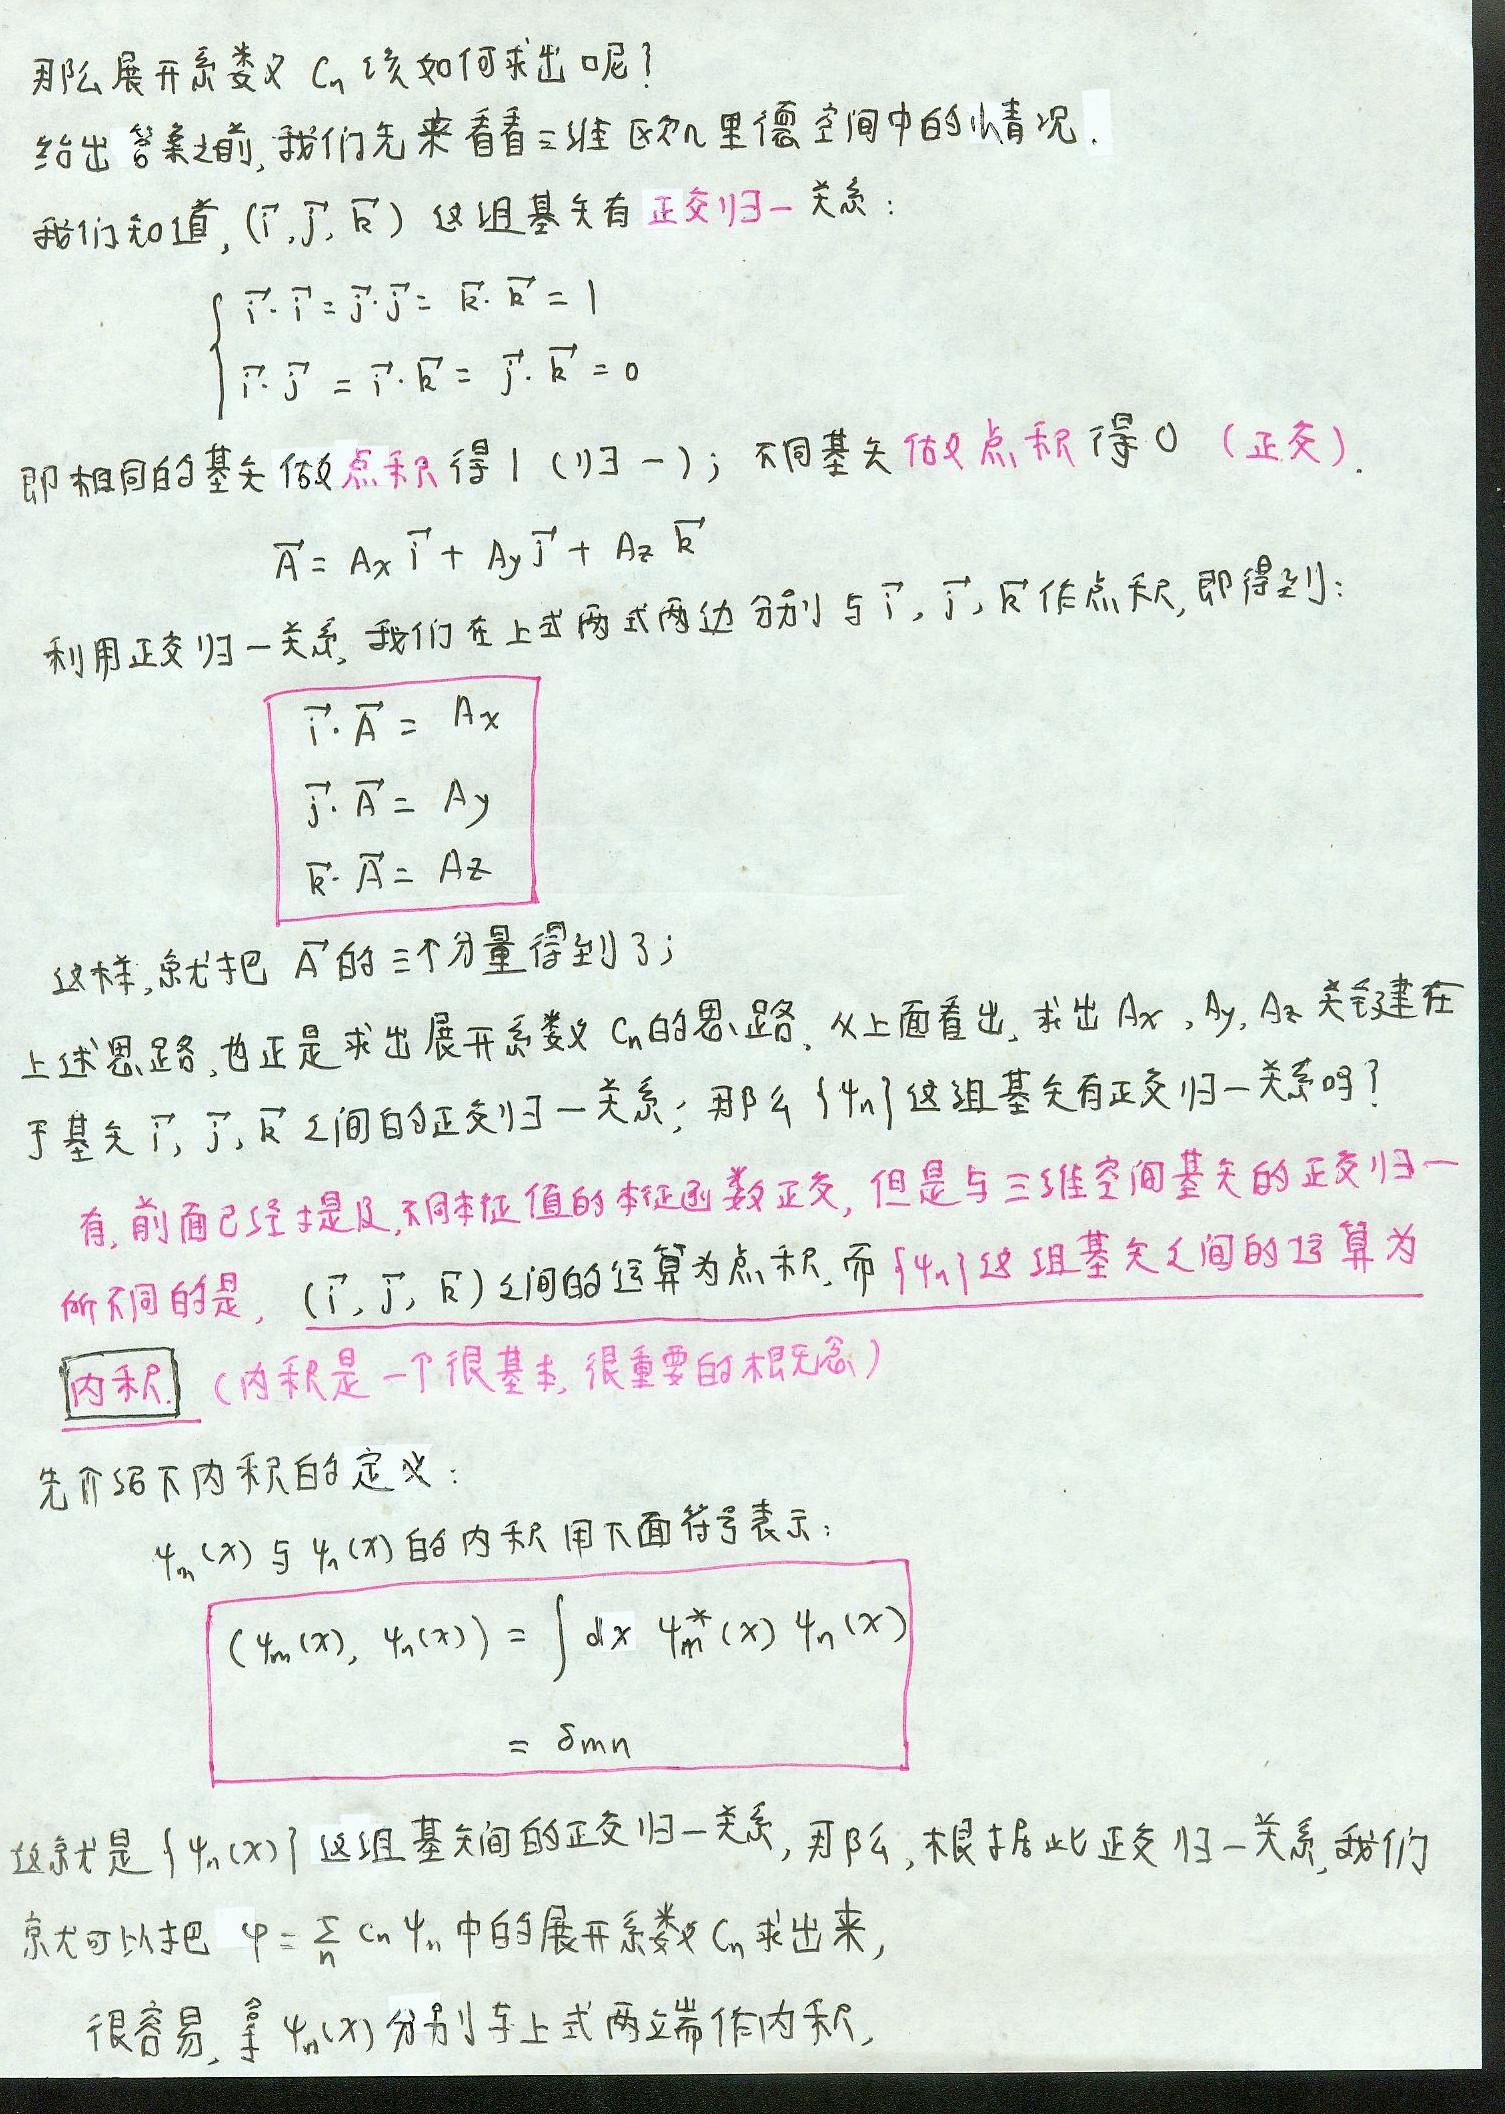 那么展开系数 Cn 该如何求出呢?
给出答案之前,我们先来看看三维欧几里德空间中的情况.
我们知道,(i⃗, j⃗, k⃗) 这组基矢有正交归一关系:
i⃗·i⃗ = j⃗·j⃗ = k⃗·k⃗ = 1
i⃗·j⃗ = i⃗·k⃗ = j⃗·k⃗ = 0
即相同的基矢做点积得1(归一);不同基矢做点积得0(正交).
A⃗ = Ax i⃗ + Ay j⃗ + Az k⃗
利用正交归一关系,我们在上式两式两边分别与 i⃗, j⃗, k⃗ 作点积,即得到:
i⃗·A⃗ = Ax
j⃗·A⃗ = Ay
k⃗·A⃗ = Az
这样,就把 A⃗ 的三个分量得到了;
上述思路,也正是求出展开系数 Cn 的思路,从上面看出,求出 Ax, Ay, Az 关键在
于基矢 i⃗, j⃗, k⃗ 之间的正交归一关系;那么 {ψn} 这组基矢有正交归一关系吗?
有,前面已经提及,不同本征值的本征函数正交,但是与三维空间基矢的正交归一
所不同的是,(i⃗, j⃗, k⃗) 之间的运算为点积,而 {ψn} 这组基矢之间的运算为
内积.(内积是一个很基本,很重要的概念)
先介绍下内积的定义:
ψm(x) 与 ψn(x) 的内积用下面符号表示:
(ψm(x), ψn(x)) = ∫ dx ψm*(x) ψn(x)
= δmn
这就是 {ψn(x)} 这组基矢间的正交归一关系,那么,根据此正交归一关系,我们
就可以把 φ = Σn cn ψn 中的展开系数 Cn 求出来,
很容易,拿 ψn(x) 分别与上式两端作内积,